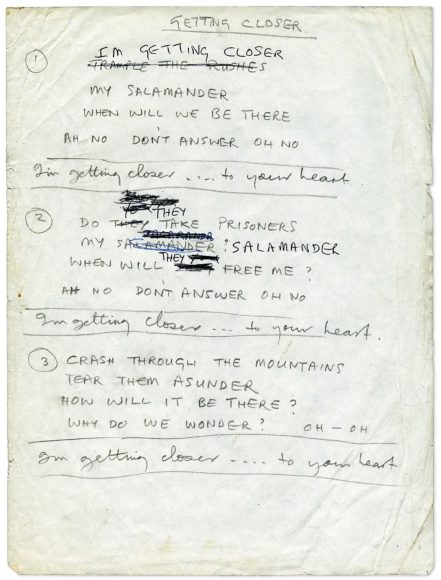 GETTING CLOSER
① I'M GETTING CLOSER
TRAMPLE THE RUSHES
MY SALAMANDER
WHEN WILL WE BE THERE
AH NO DON'T ANSWER OH NO
I'm getting closer .... to your heart
② DO THEY TAKE PRISONERS
MY SALAMANDER? SALAMANDER
WHEN WILL THEY FREE ME?
AH NO DON'T ANSWER OH NO
I'm getting closer .... to your heart.
③ CRASH THROUGH THE MOUNTAINS
TEAR THEM ASUNDER
HOW WILL IT BE THERE?
WHY DO WE WONDER? OH – OH
I'm getting closer .... to your heart